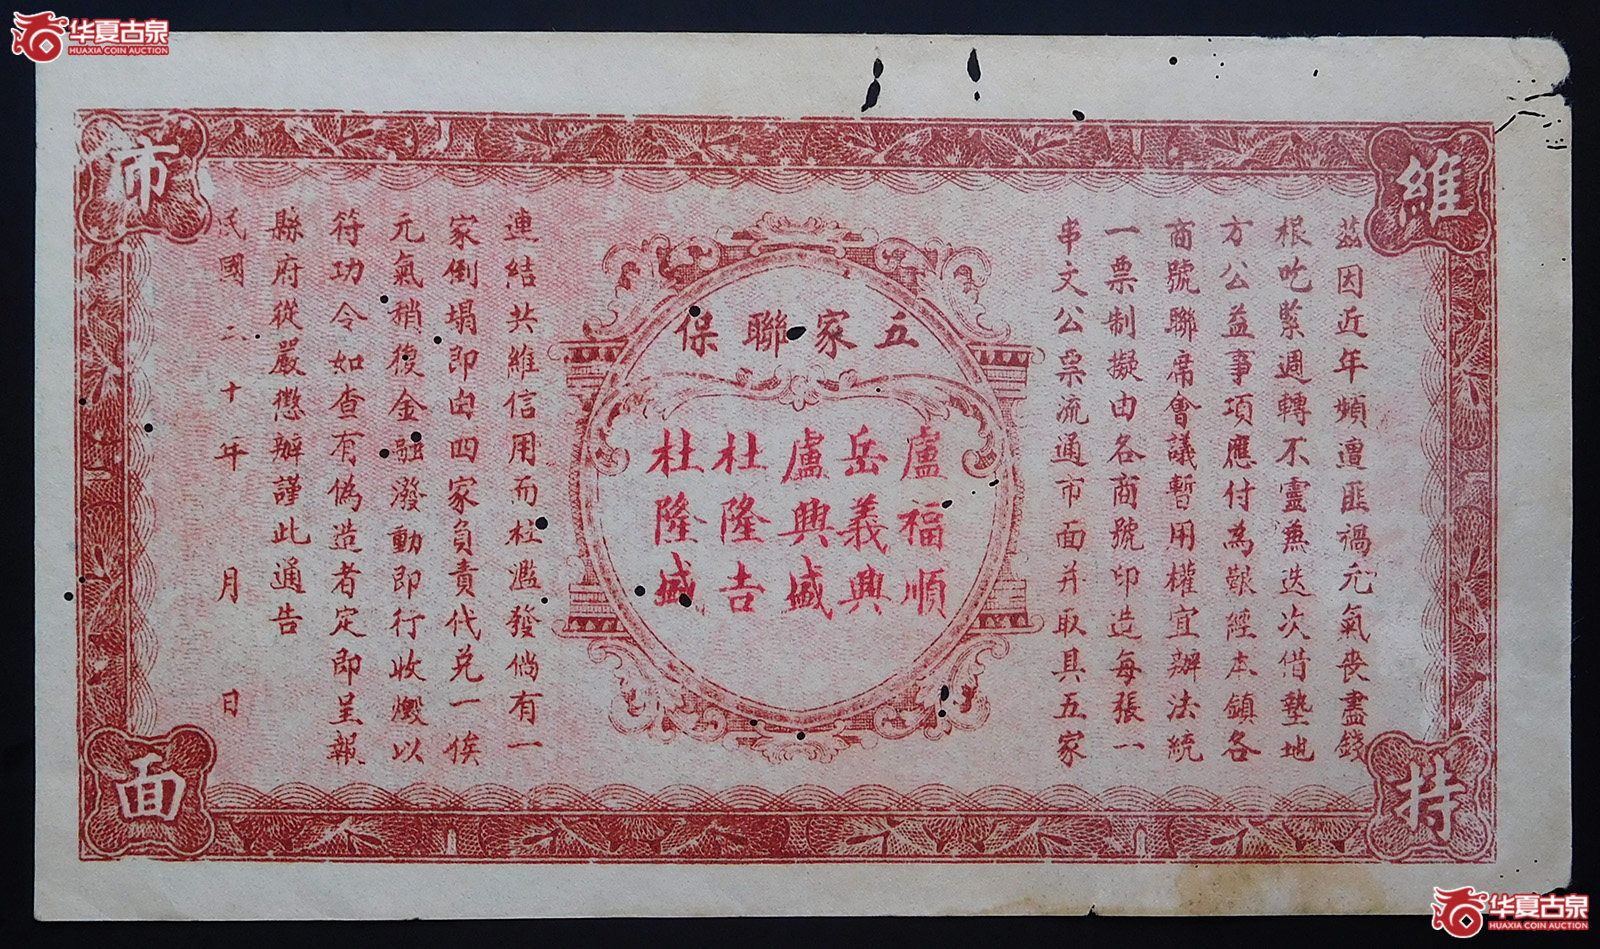 华夏古泉
HUAXIA COIN AUCTION
維持市面
茲因近年頻遭匪禍元氣喪盡錢
根吃緊週轉不靈兼迭次借墊地
方公益事項應付為艱經本鎮各
商號聯席會議暫用權宜辦法統
一票制擬由各商號印造每張一
串文公票流通市面并取具五家
五家聯保
盧福順
岳義興
盧興盛
杜隆吉
杜隆盛
連結共維信用而杜濫發倘有一
家倒塌即由四家負責代兑一俟
元氣稍復金融潑動即行收燬以
符功令如查有偽造者定即呈報
縣府從嚴懲辦謹此通告
民國二十年月日
华夏古泉
HUAXIA COIN AUCTION